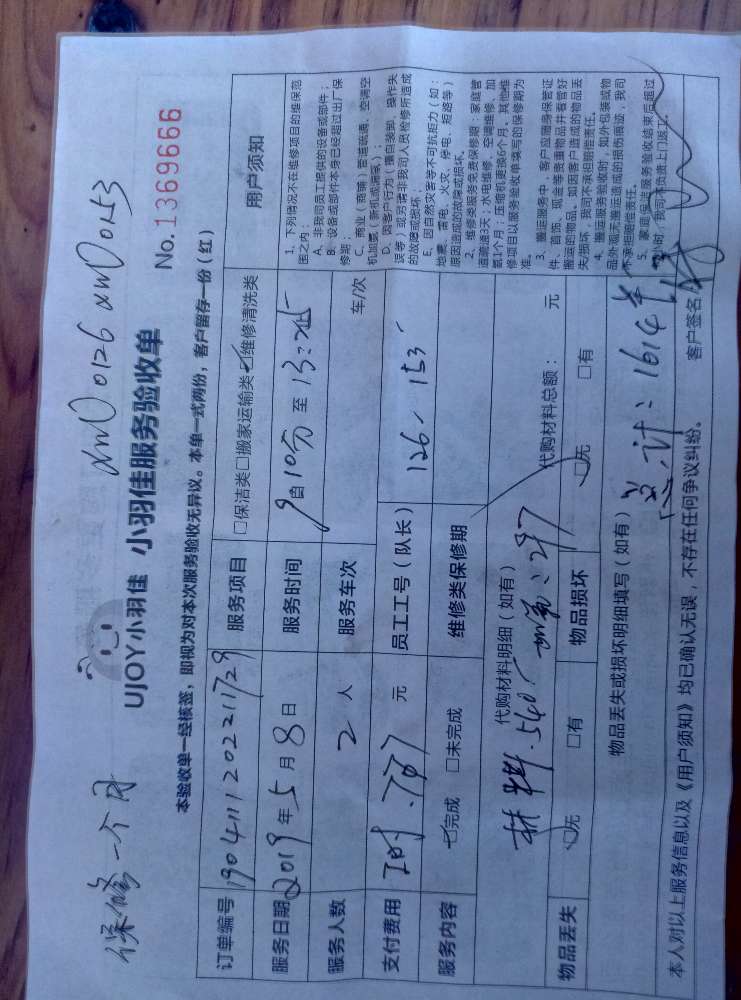 保修一个月
xmD0126 xmD0153
UJOY小羽佳 小羽佳服务验收单
No.1369666
本验收单一经核签，即视为对本次服务验收无异议。本单一式两份，客户留存一份（红）
订单编号 190411120221729 服务项目 □保洁类□搬家运输类☑维修清洗类 用户须知
服务日期 2019年5月8日 服务时间 自10分至13:25
服务人数 2人 服务车次 车/次
支付费用 元 员工工号（队长） 126、153
服务内容 ☑完成 □未完成 维修类保修期
代购材料明细（如有） 代购材料总额： 元
材料.540、 :287
物品丢失 ☑无 □有 物品损坏 ☑无 □有
物品丢失或损坏明细填写（如有）
总计：1614
本人对以上服务信息以及《用户须知》均已确认无误，不存在任何争议纠纷。 客户签名
1、下列情况不在维修项目的维保范
围之内：
A、非我司员工提供的设备或部件；
B、设备或部件本身已经超过出厂保
修期；
C、商业（商铺）管道疏通、空调空
机加氨（新机或清氨）；
D、因客户行为（擅自装卸、操作失
误等）或另请非我司人员检修所造成
的故障或损坏；
E、因自然灾害等不可抗拒力（如：
地震、雷电、火灾、停电、短路等）
原因造成的故障或损坏。
2、维修类服务免费保修期：家庭管
道疏浪3天；水电维修、空调维修、加
氨1个月；压缩机更换6个月、其他维
修项目以服务验收单填写的保修期为
准。
3、搬运服务中，客户应随身保管证
件、首饰、现金等贵重物品并看管好
搬运的物品，如因客户造成的物品丢
失/损坏，我司不承担赔偿责任。
4、搬运服务验收时，如外包装或物
品外观无搬运造成的损伤痕迹，我司
不承担赔偿责任。
5、家庭保洁服务验收结束后超过
小时，我司不负责上门返工。